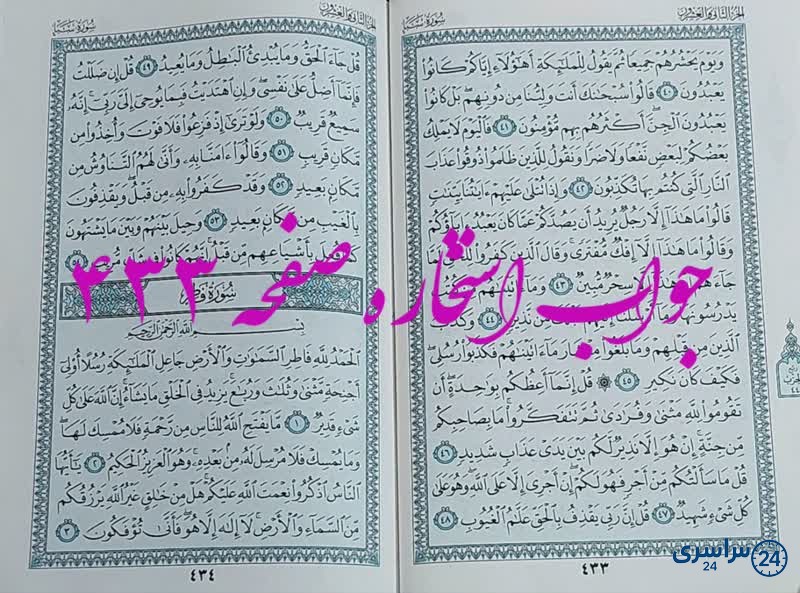 الجزء الثاني والعشرون
سورة سبأ
ويوم يحشرهم جميعا ثم يقول للملئكة أهؤلاء إياكم كانوا
يعبدون ٤٠ قالوا سبحنك أنت ولينا من دونهم بل كانوا
يعبدون الجن أكثرهم بهم مؤمنون ٤١ فاليوم لا يملك
بعضكم لبعض نفعا ولا ضرا ونقول للذين ظلموا ذوقوا عذاب
النار التي كنتم بها تكذبون ٤٢ وإذا تتلى عليهم ءايتنا بينت
قالوا ما هذا إلا رجل يريد أن يصدكم عما كان يعبد ءاباؤكم
وقالوا ما هذا إلا إفك مفترى وقال الذين كفروا للحق لما
جاءهم إن هذا إلا سحر مبين ٤٣ وما ءاتينهم من كتب
يدرسونها وما أرسلنا إليهم قبلك من نذير ٤٤ وكذب
الذين من قبلهم وما بلغوا معشار ما ءاتينهم فكذبوا رسلي
فكيف كان نكير ٤٥ قل إنما أعظكم بوحدة أن
تقوموا لله مثنى وفردى ثم تتفكروا ما بصاحبكم
من جنة إن هو إلا نذير لكم بين يدي عذاب شديد ٤٦
قل ما سألتكم من أجر فهو لكم إن أجري إلا على الله وهو على
كل شيء شهيد ٤٧ قل إن ربي يقذف بالحق علم الغيوب ٤٨
٤٣٣
الجزء الثاني والعشرون
سورة سبأ
قل جاء الحق وما يبدئ البطل وما يعيد ٤٩ قل إن ضللت
فإنما أضل على نفسي وإن اهتديت فبما يوحي إلي ربي إنه
سميع قريب ٥٠ ولو ترى إذ فزعوا فلا فوت وأخذوا من
مكان قريب ٥١ وقالوا ءامنا به وأنى لهم التناوش من
مكان بعيد ٥٢ وقد كفروا به من قبل ويقذفون
بالغيب من مكان بعيد ٥٣ وحيل بينهم وبين ما يشتهون
كما فعل بأشياعهم من قبل إنهم كانوا في شك مريب ٥٤
سورة فاطر
بسم الله الرحمن الرحيم
الحمد لله فاطر السموت والأرض جاعل الملئكة رسلا أولي
أجنحة مثنى وثلث وربع يزيد في الخلق ما يشاء إن الله على كل
شيء قدير ١ ما يفتح الله للناس من رحمة فلا ممسك لها
وما يمسك فلا مرسل له من بعده وهو العزيز الحكيم ٢ يأيها
الناس اذكروا نعمت الله عليكم هل من خلق غير الله يرزقكم
من السماء والأرض لا إله إلا هو فأنى تؤفكون ٣
٤٣٤
جواب استخاره صفحه ۴۳۳
سراسری
24
24